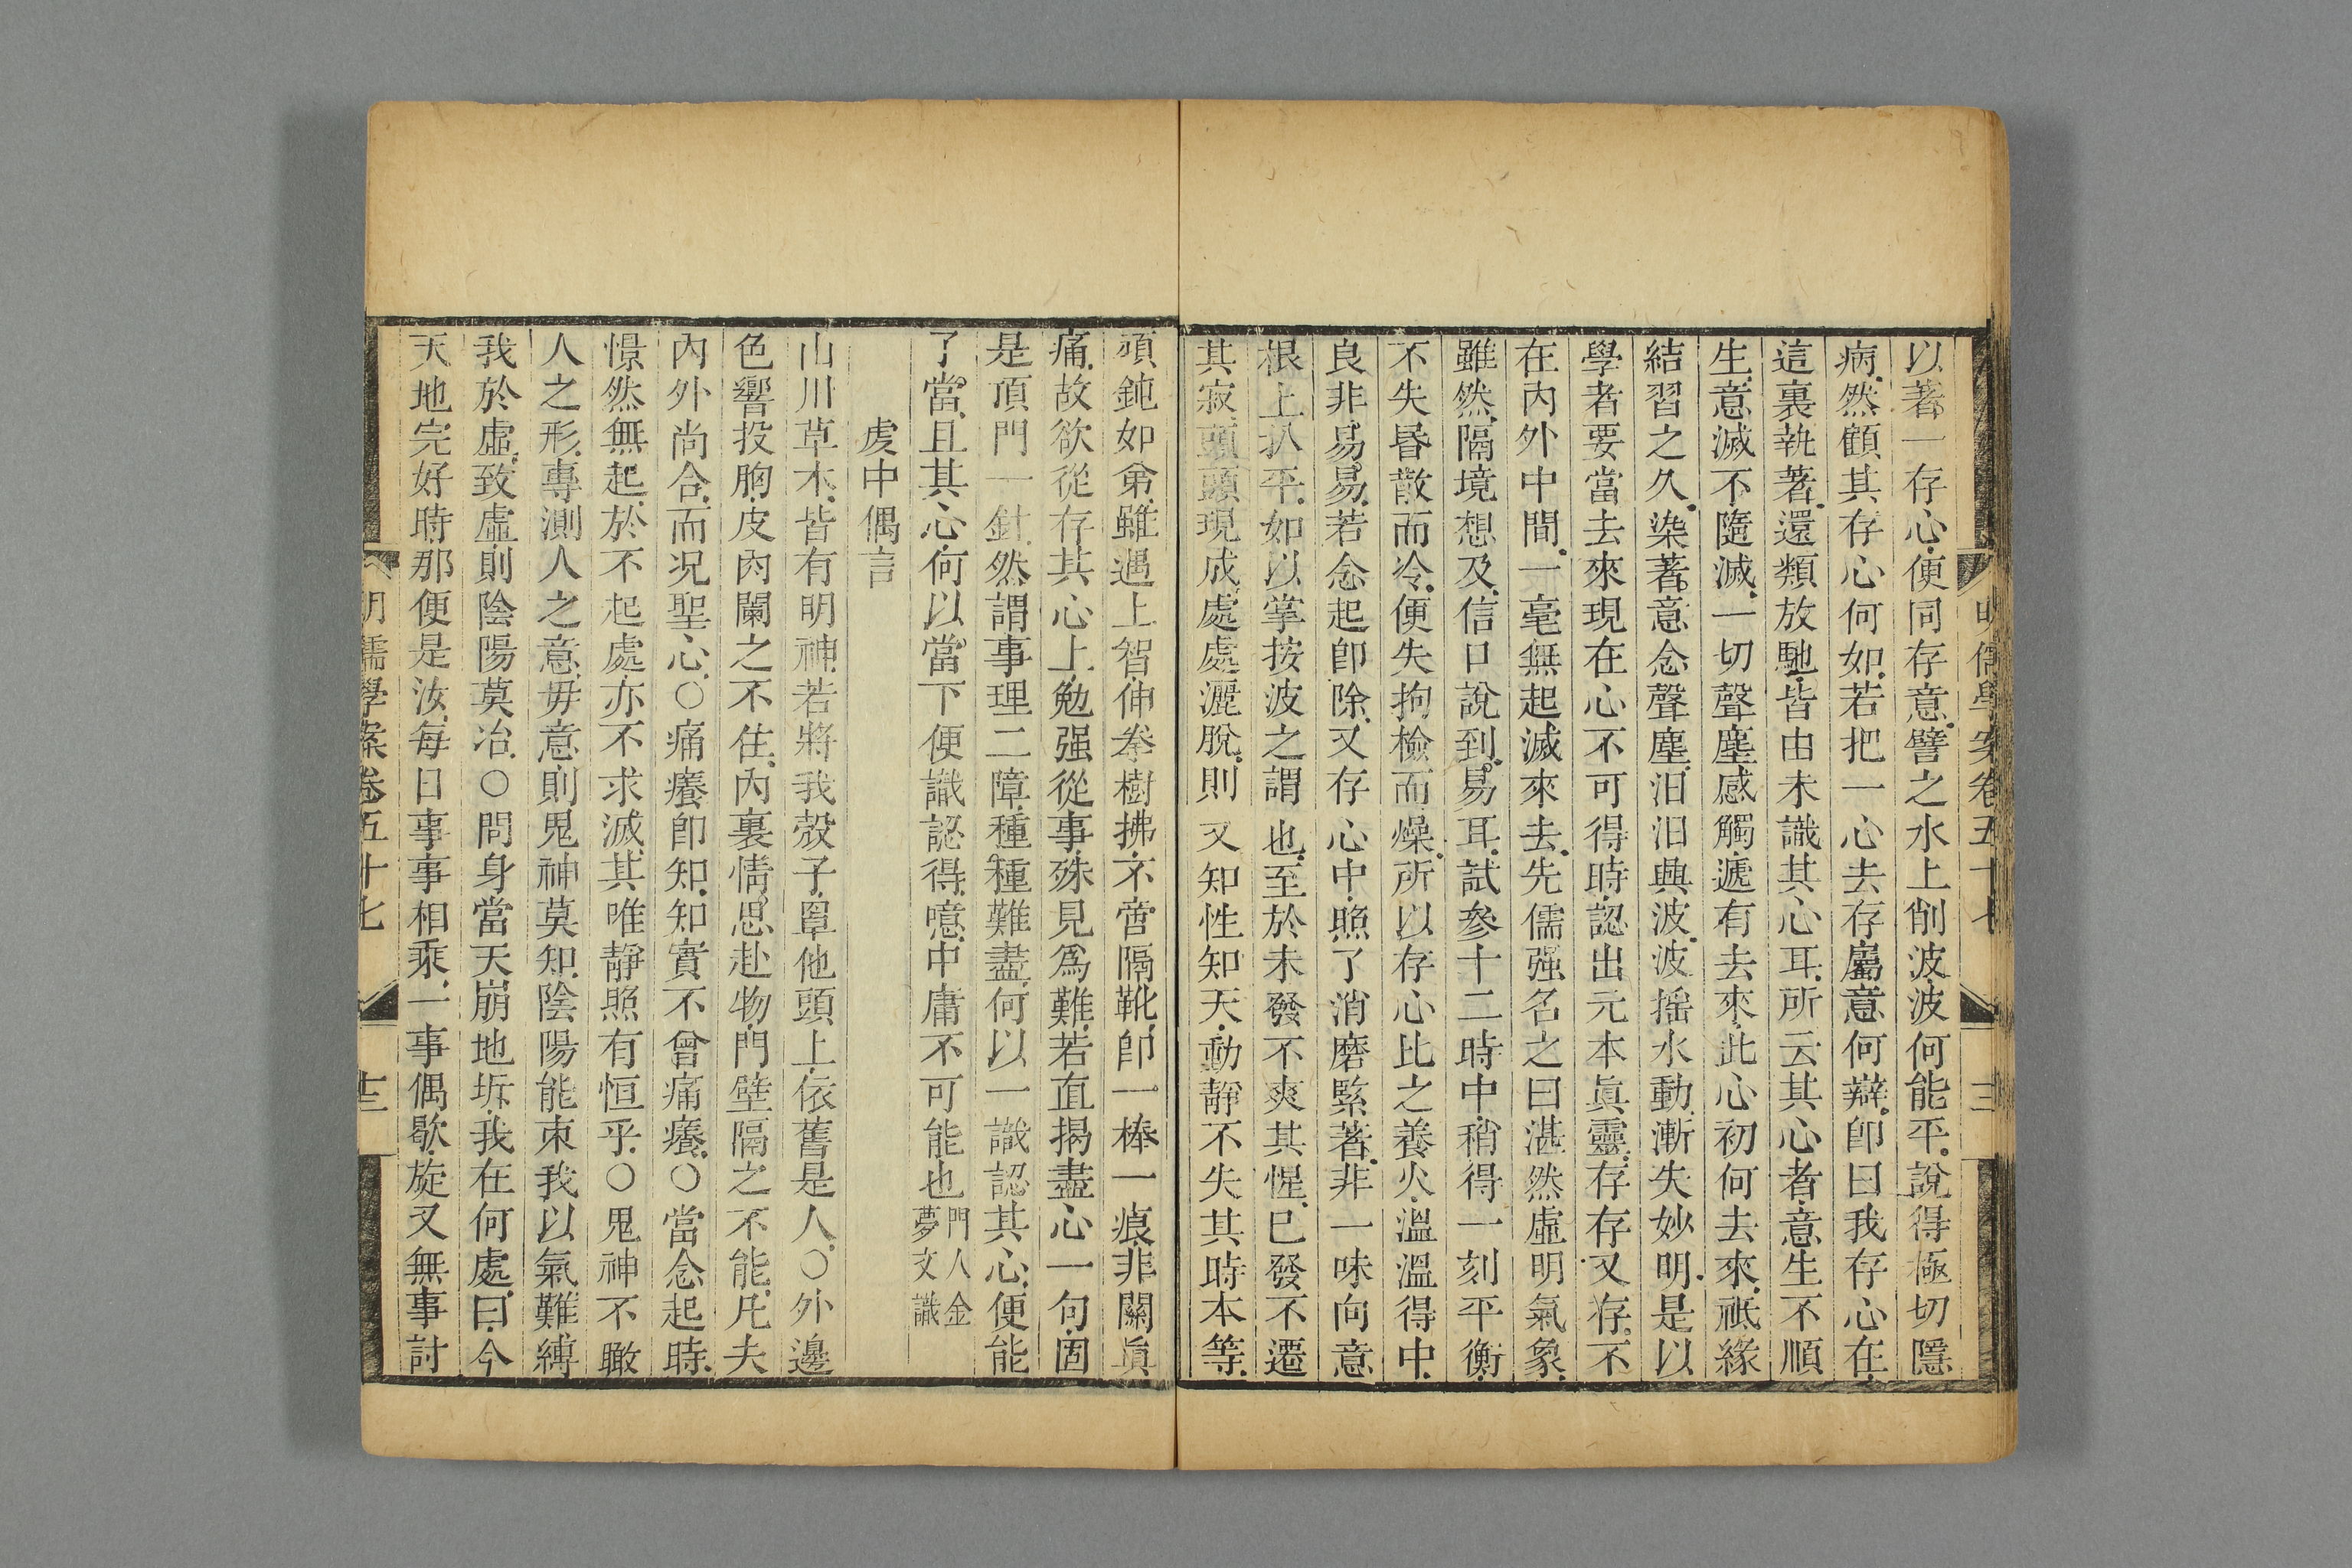 明儒學案卷五十七
以著一存心便同存意譬之水上削波波何能平說得極切隱
病然顧其存心何如若把一心去存屬意何辯卽曰我存心在
這裏執著還類放馳皆由未識其心耳所云其心者意生不順
生意滅不隨滅一切聲塵感觸遞有去來此心初何去來祗緣
結習之久染著意念聲塵汨汨興波波搖水動漸失妙明是以
學者要當去來現在心不可得時認出元本眞靈存存又存不
在內外中間一毫無起滅來去先儒强名之曰湛然虛明氣象
雖然隔境想及信口說到易耳試參十二時中稍得一刻平衡
不失昬散而冷便失拘檢而燥所以存心比之養火溫溫得中
良非易易若念起卽除又存心中照了消磨緊著非一味向意
根上扒平如以掌按波之謂也至於未發不爽其惺已發不遷
其寂頭頭現成處處灑脫則又知性知天動靜不失其時本等
頑鈍如弟雖遇上智伸拳樹拂不啻隔靴卽一棒一痕非關眞
痛故欲從存其心上勉强從事殊見爲難若直揭盡心一句固
是頂門一針然謂事理二障種種難盡何以一識認其心便能
了當且其心何以當下便識認得噫中庸不可能也門人金
夢文識
虔中偶言
山川草木皆有明神若將我殼子罩他頭上依舊是人○外邊
色響投胸皮肉闌之不住內裏情思赴物門壁隔之不能凡夫
內外尚合而況聖心○痛癢卽知知實不曾痛癢○當念起時
憬然無起於不起處亦不求滅其唯靜照有恒乎○鬼神不瞰
人之形專測人之意毋意則鬼神莫知陰陽能束我以氣難縛
我於虛致虛則陰陽莫冶○問身當天崩地坼我在何處曰今
天地完好時那便是汝每日事事相乘一事偶歇旋又無事討
明儒學案卷五十七